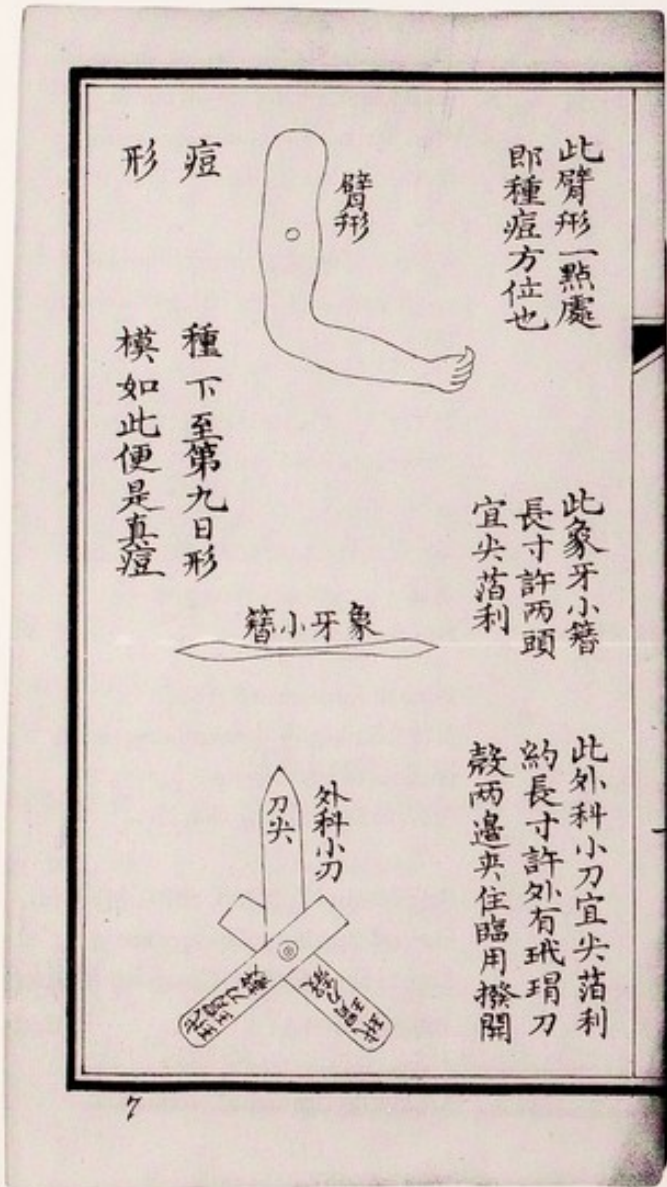 此臂形一點處
即種痘方位也
臂形
痘
形
種下至第九日形
模如此便是真痘
此象牙小簪
長寸許两頭
宜尖萡利
象牙小簪
此外科小刀宜尖萡利
約長寸許外有玳瑁刀
殼两邊夾住臨用撥開
外科小刀
刀尖
玳瑁刀殼
玳瑁刀殼
7